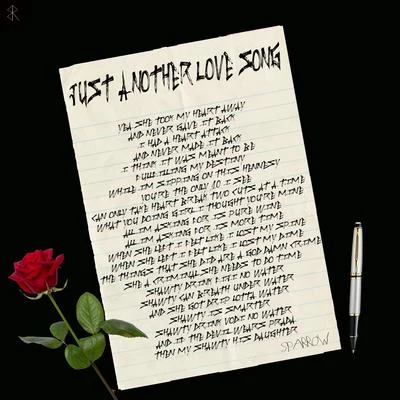 JUST ANOTHER LOVE SONG
YEA SHE TOOK MY HEART AWAY
AND NEVER GAVE IT BACK
I HAD A HEART ATTACK
AND NEVER MADE IT BACK
I THINK IT WAS MEANT TO BE
FULLFILLING MY DESTINY
WHILE I'M SIPPING ON THIS HENNESSY
YOU'RE THE ONLY 10 I SEE
CAN ONLY TAKE HEART BREAK TWO CUTS AT A TIME
WHAT YOU DOING GIRL I THOUGHT YOU'RE MINE
ALL I'M ASKING FOR IS PURE WINE
ALL I'M ASKING FOR IS MORE TIME
WHEN SHE LEFT I FELT LIKE I LOST MY SPINE
WHEN SHE LEFT I FELT LIKE I LOST MY DIME
THE THINGS THAT SHE DID ARE A GOD DAMN CRIME
SHE A CRIMINAL SHE NEEDS TO DO TIME
SHAWTY DRINK FIJI NO WATER
SHAWTY CAN BREATH UNDER WATER
AND SHE GOT DRIP LOTTA WATER
SHAWTY IS SMARTER
SHAWTY DRINK VODI NO WATER
AND IF THE DEVIL WEARS PRADA
THEN MY SHAWTY HIS DAUGHTER
SPARROW